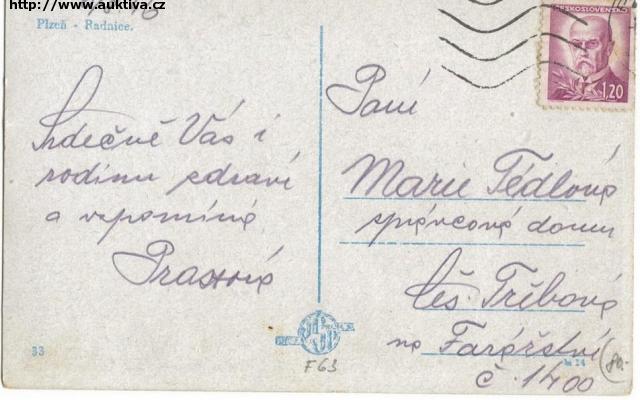 http://www.auktiva.cz
Plzeň - Radnice.
Srdečně Vás i
rodinu zdraví
a vzpomíná
ČESKOSLOVENSKO
1,20
Paní
Marie Tédlová
správcová domu
Čes. Třebová
na Farářství
č. 1400
33
F63
№ 24
80.-